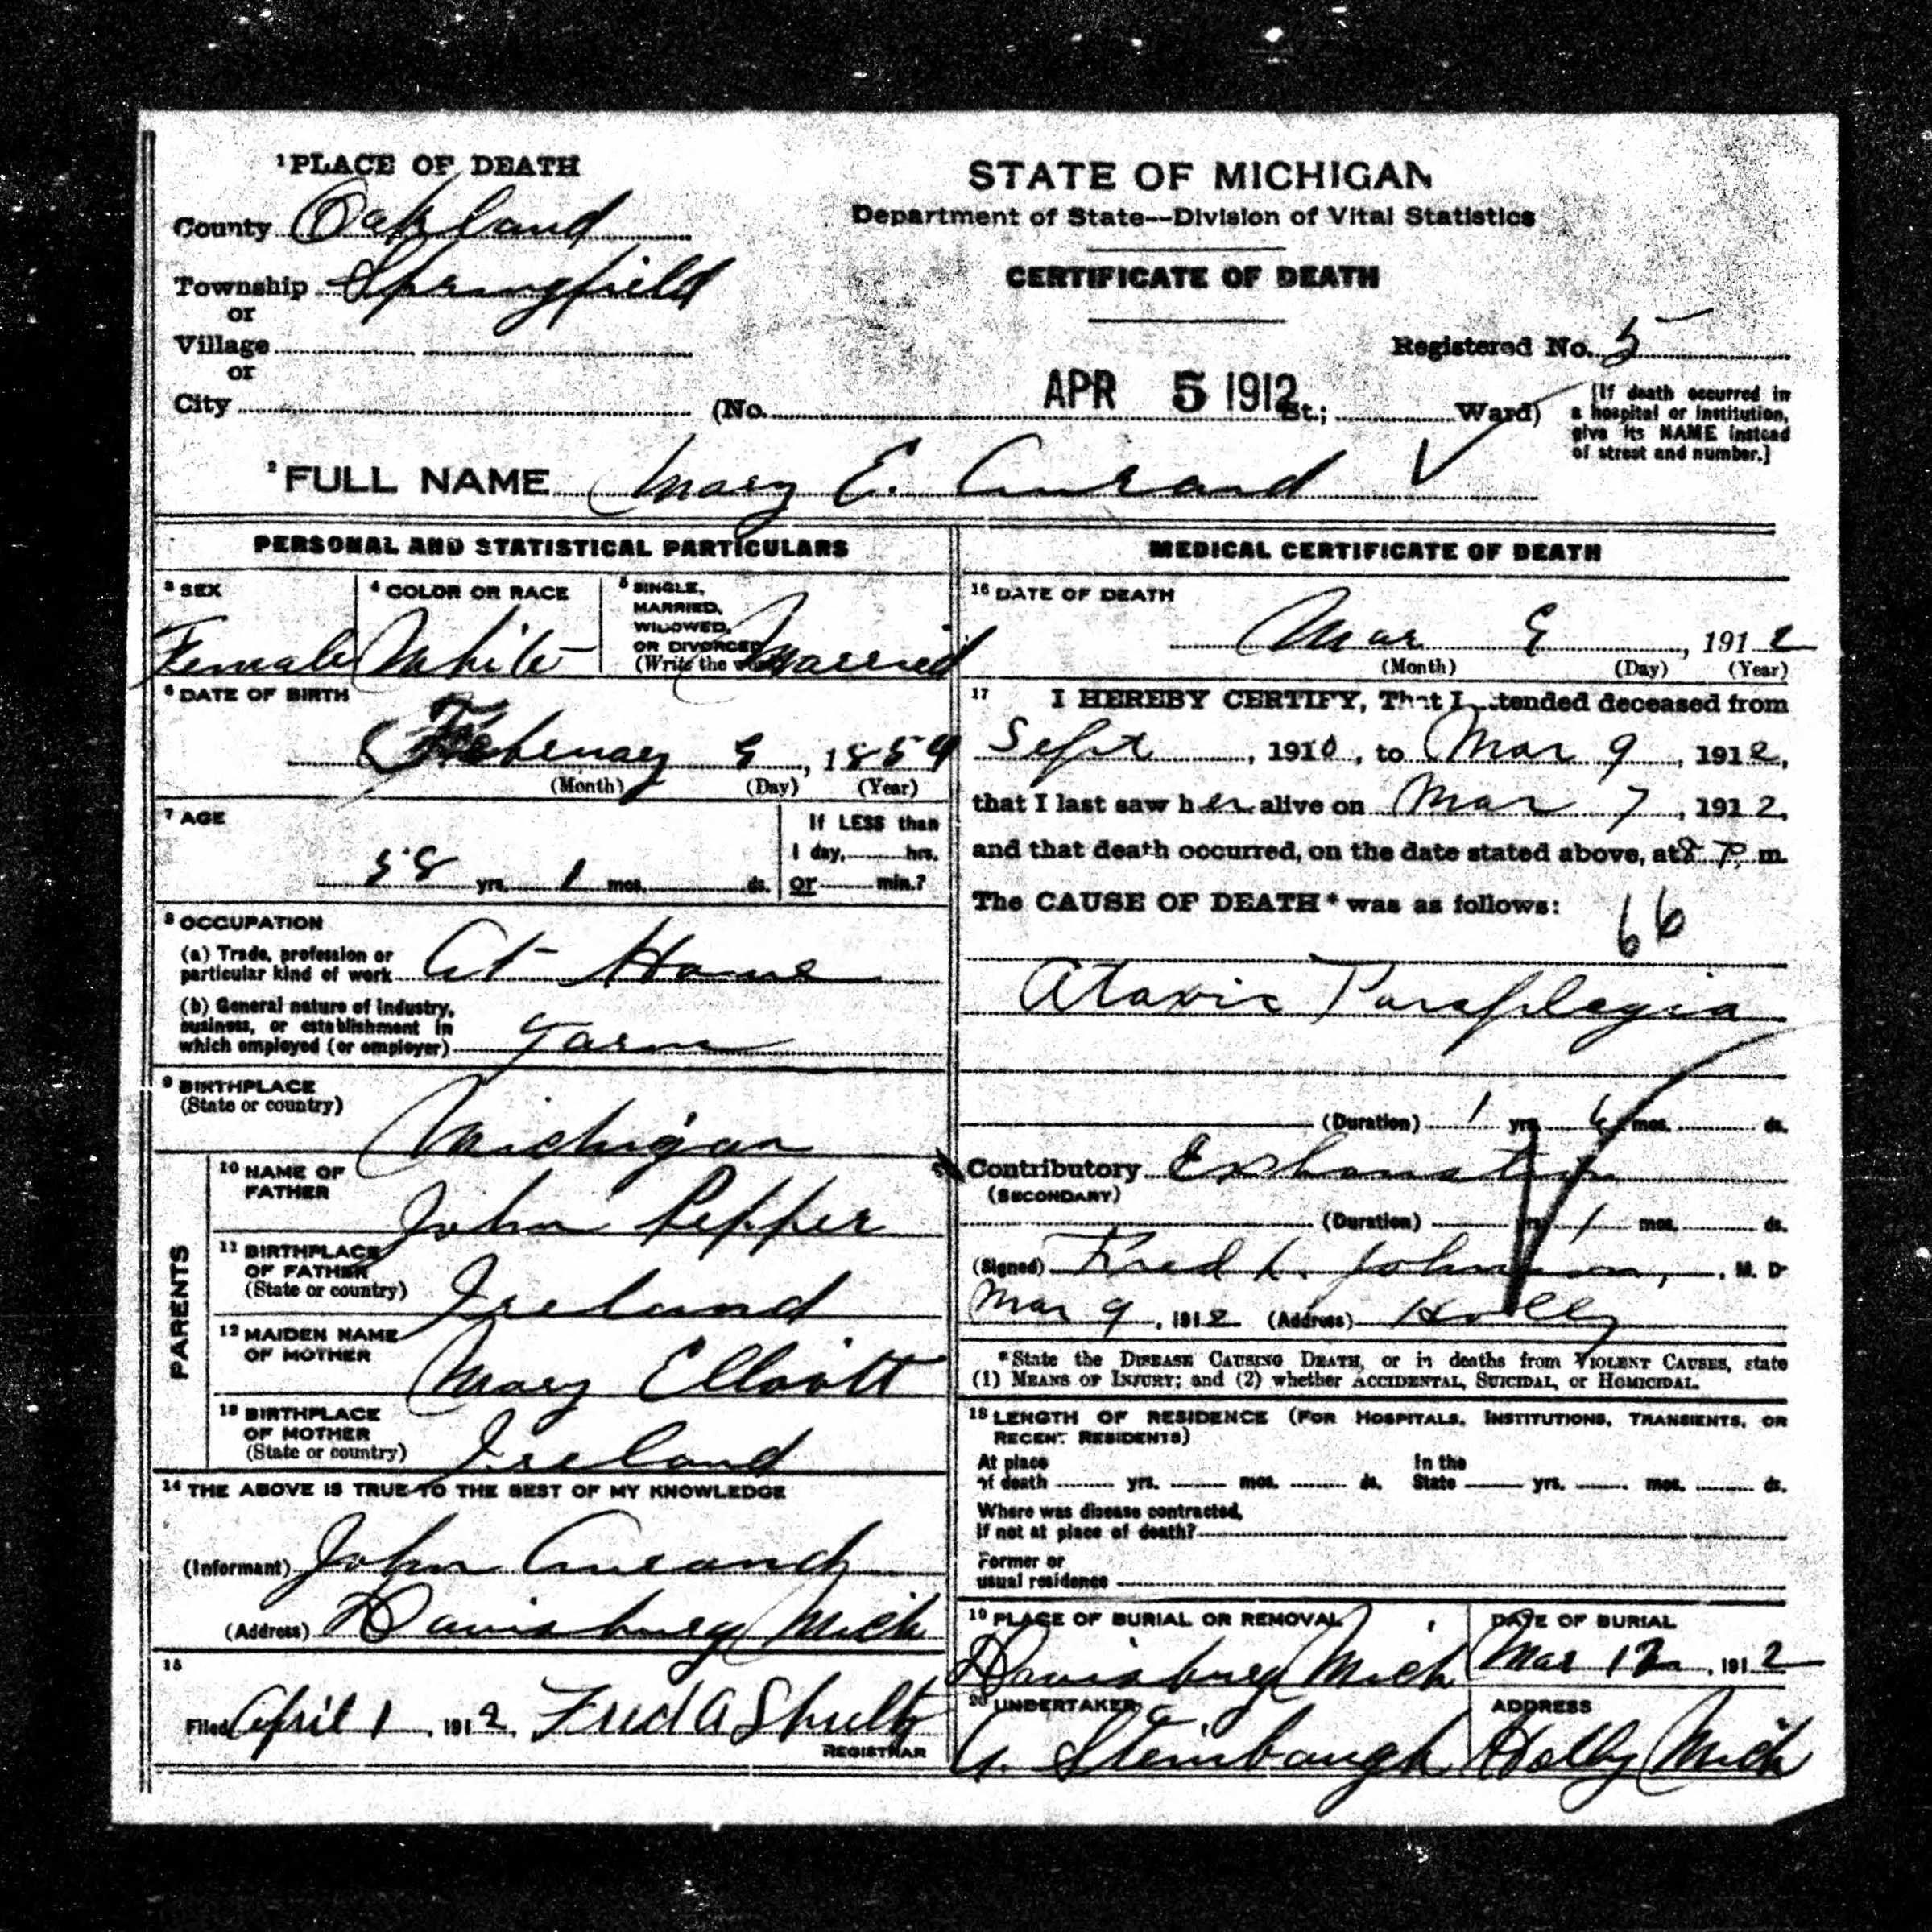 1 PLACE OF DEATH
County Oakland
Township Springfield
or
Village
or
City (No. St.; Ward)
STATE OF MICHIGAN
Department of State—Division of Vital Statistics
CERTIFICATE OF DEATH
Registered No. 5
APR 5 1912
[If death occurred in
a hospital or institution,
give its NAME instead
of street and number.]
2 FULL NAME Mary E. Aurand
PERSONAL AND STATISTICAL PARTICULARS
3 SEX
Female
4 COLOR OR RACE
White
5 SINGLE,
MARRIED,
WIDOWED,
OR DIVORCED
(Write the Married
6 DATE OF BIRTH
February 9, 1854
(Month) (Day) (Year)
7 AGE
58 yrs. 1 mos. ds.
If LESS than
1 day, hrs.
or min.?
8 OCCUPATION
(a) Trade, profession or
particular kind of work At Home
(b) General nature of industry,
business, or establishment in
which employed (or employer) Farm
9 BIRTHPLACE
(State or country)
Michigan
PARENTS
10 NAME OF
FATHER
John Pepper
11 BIRTHPLACE
OF FATHER
(State or country) Ireland
12 MAIDEN NAME
OF MOTHER
Mary Elliott
13 BIRTHPLACE
OF MOTHER
(State or country) Ireland
14 THE ABOVE IS TRUE TO THE BEST OF MY KNOWLEDGE
(Informant) John Aurand
(Address) Davisburg Mich
15
Filed April 1, 1912. Fred A Shultz
REGISTRAR
MEDICAL CERTIFICATE OF DEATH
16 DATE OF DEATH
Mar 9, 1912
(Month) (Day) (Year)
17 I HEREBY CERTIFY, That I attended deceased from
Sept, 1910, to Mar 9, 1912,
that I last saw her alive on Mar 7, 1912,
and that death occurred, on the date stated above, at 8 P. m.
The CAUSE OF DEATH* was as follows:
66
Ataxic Paraplegia
(Duration) 1 yrs. 6 mos. ds.
Contributory Exhaustion
(SECONDARY)
(Duration) yrs. 1 mos. ds.
(Signed) Fred L. Johnson, M. D
Mar 9, 1912 (Address) Holly
*State the DISEASE CAUSING DEATH, or in deaths from VIOLENT CAUSES, state
(1) MEANS OF INJURY; and (2) whether ACCIDENTAL, SUICIDAL, or HOMICIDAL.
18 LENGTH OF RESIDENCE (FOR HOSPITALS, INSTITUTIONS, TRANSIENTS, OR
RECENT RESIDENTS)
At place
of death yrs. mos. ds.
In the
State yrs. mos. ds.
Where was disease contracted,
if not at place of death?
Former or
usual residence
19 PLACE OF BURIAL OR REMOVAL
Davisburg Mich
DATE OF BURIAL
Mar 12, 1912
20 UNDERTAKER
A. Steinbaugh
ADDRESS
Holly Mich